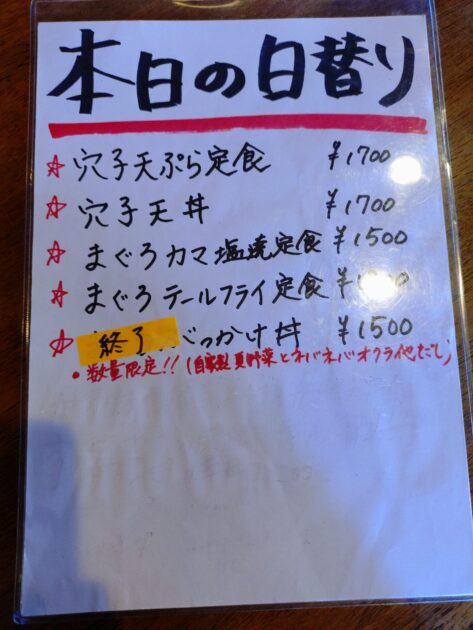 本日の日替り
☆ 穴子天ぷら定食 ¥1700
☆ 穴子天丼 ¥1700
☆ まぐろカマ塩焼定食 ¥1500
☆ まぐろテールフライ定食
☆ 終了 ぶっかけ丼 ¥1500
• 数量限定!! (自家製 夏野菜とネバネバオクラ他だし)